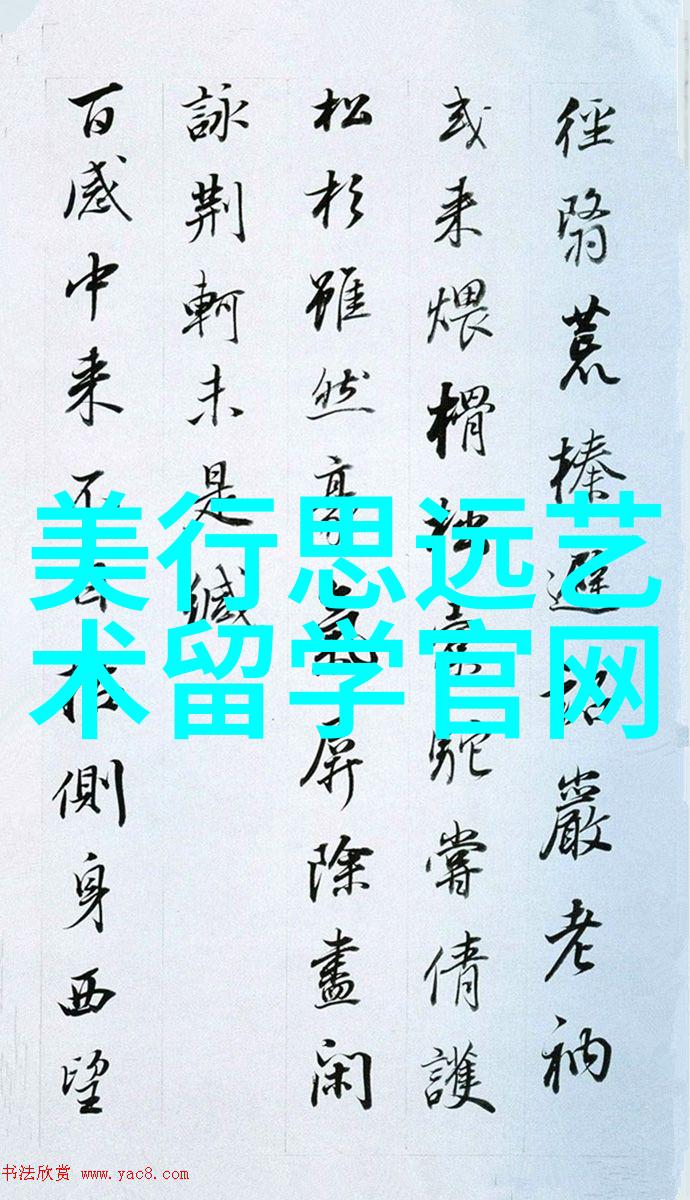 徑翳荒榛遲嚴老衲
或来煨榾駝嘗倩護
松杉雖然豪氣屏除盡閑
詠荆軻未是緘
百感中来不自側身西望
美行思远艺
术留学官网
书法欣赏 www.yac8.com